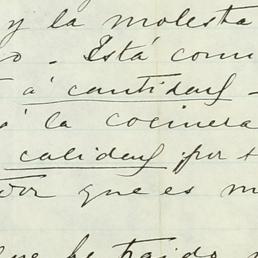 y la molesta
o - Está com
á cantidad -
á la cocinera
calidad ¡por
or que es m
que he traido